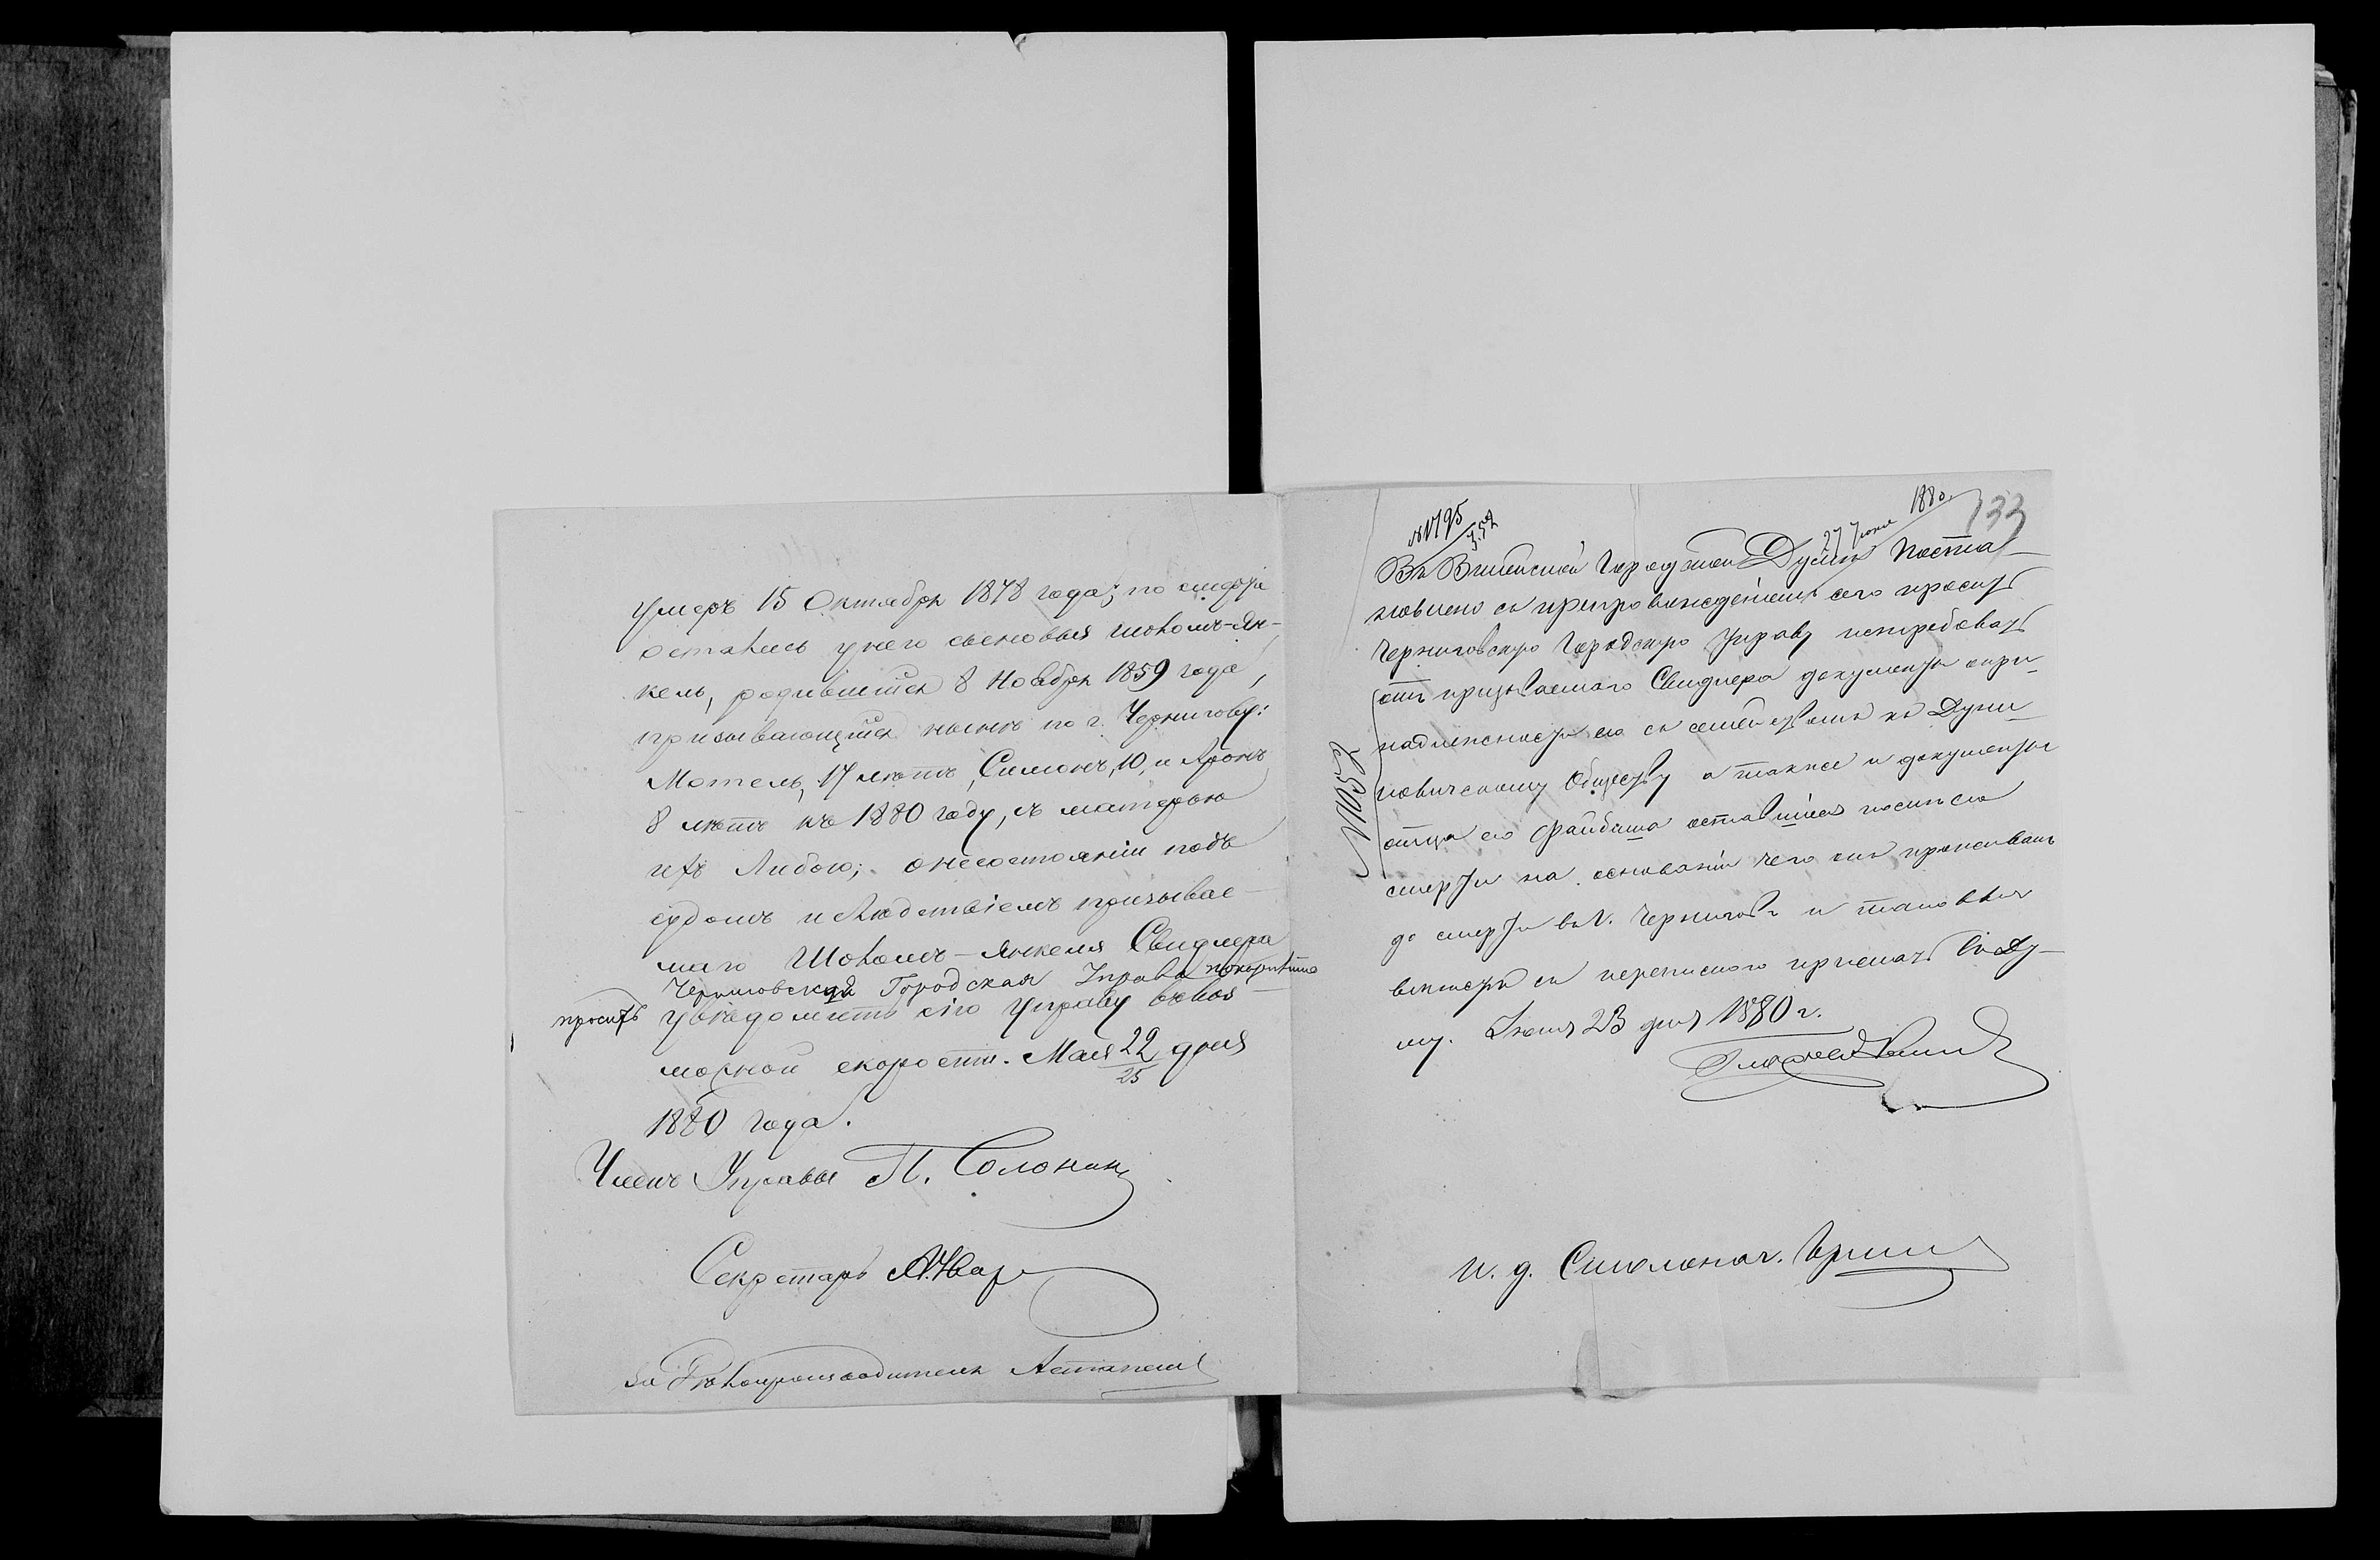 умеръ 15 Октября 1878 года; по смерти
остались у него сыновья Шоломъ-Ян-
кель, родившійся 8 Ноября 1859 года,
призывающійся нынѣ по г. Чернигову:
Мотель, 17 лѣтъ, Симонъ, 10, и Аронъ
8 лѣтъ къ 1880 году, съ матерью
ихъ Либою; о несостояніи подъ
судомъ и слѣдствіемъ призывае-
маго Шоломъ-Янкеля Свидлера
Черниговская Городская Управа покорнѣйше
проситъ увѣдомить сію Управу въ воз-
можной скорости. Мая 22/25 дня
1880 года.
Членъ Управы П. Солонин
Секретарь
За Дѣлопроизводителя
133
27 Іюня 1880
№ 1795
Въ Витебской Городской Думѣ Поста-
новлено съ препровожденіемъ сего просить
Черниговскую Городскую Управу истребовать
отъ призываемаго Свидлера документы о при-
надлежности его съ семействомъ къ Души-
новичскому Обществу а также и документы
отца его Файбиша оставшіяся послѣ его
смерти на основаніи чего онъ проживалъ
до смерти въ г. Черниговѣ и таковыя
съ перепискою прислать въ Ду-
му. Іюня 23 дня 1880 г.
№ 1052
И. д. Столонач.